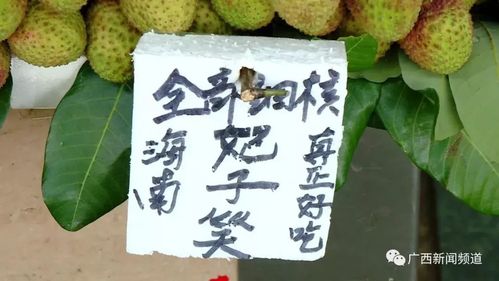 全部细核
海南
妃子笑
真正好吃
广西新闻频道